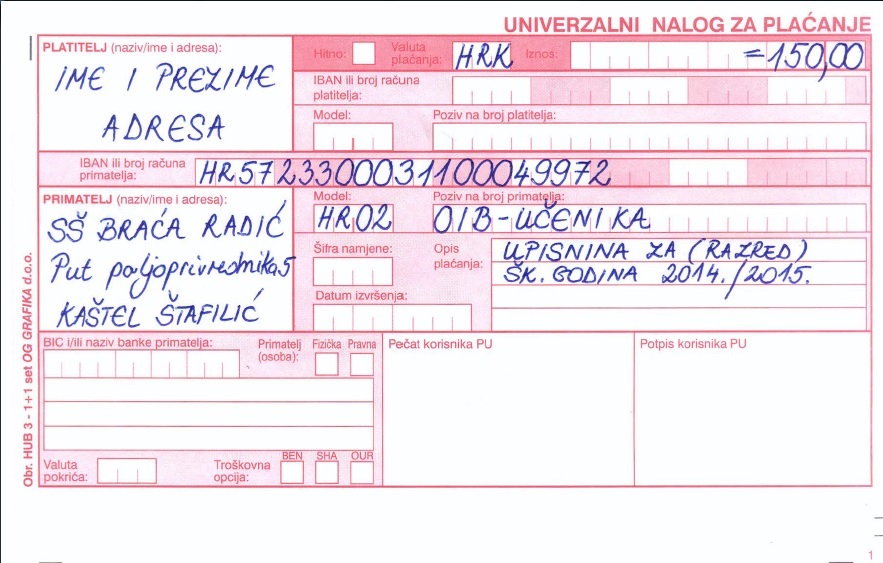 UNIVERZALNI NALOG ZA PLAĆANJE
PLATITELJ (naziv/ime i adresa):
IME I PREZIME
ADRESA
Hitno:
Valuta plaćanja:
HRK
Iznos:
=150,00
IBAN ili broj računa platitelja:
Model:
Poziv na broj platitelja:
IBAN ili broj računa primatelja:
HR5723300031100049972
PRIMATELJ (naziv/ime i adresa):
SŠ BRAĆA RADIĆ
Put poljoprivrednika 5
KAŠTEL ŠTAFILIĆ
Model:
HR02
Poziv na broj primatelja:
OIB-UČENIKA
Šifra namjene:
Opis plaćanja:
UPISNINA ZA (RAZRED)
ŠK. GODINA 2014./2015.
Datum izvršenja:
BIC i/ili naziv banke primatelja:
Primatelj (osoba):
Fizička
Pravna
Pečat korisnika PU
Potpis korisnika PU
Valuta pokrića:
Troškovna opcija:
BEN
SHA
OUR
Obr. HUB 3 - 1+1 set OG GRAFIKA d.o.o.
1